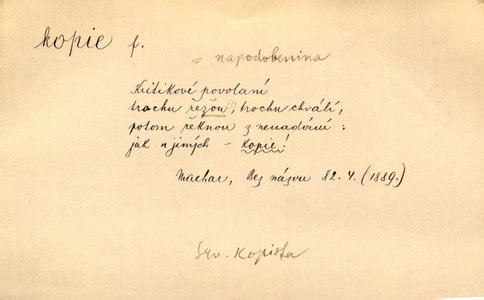 kopie f.
= napodobenina
Kritikové povolaní
trochu řežou, trochu chválí,
potom řeknou z nenadání:
jak u jiných – kopie!
Machar, Bez názvu 82. 4. (1889.)
Srv. Kopista